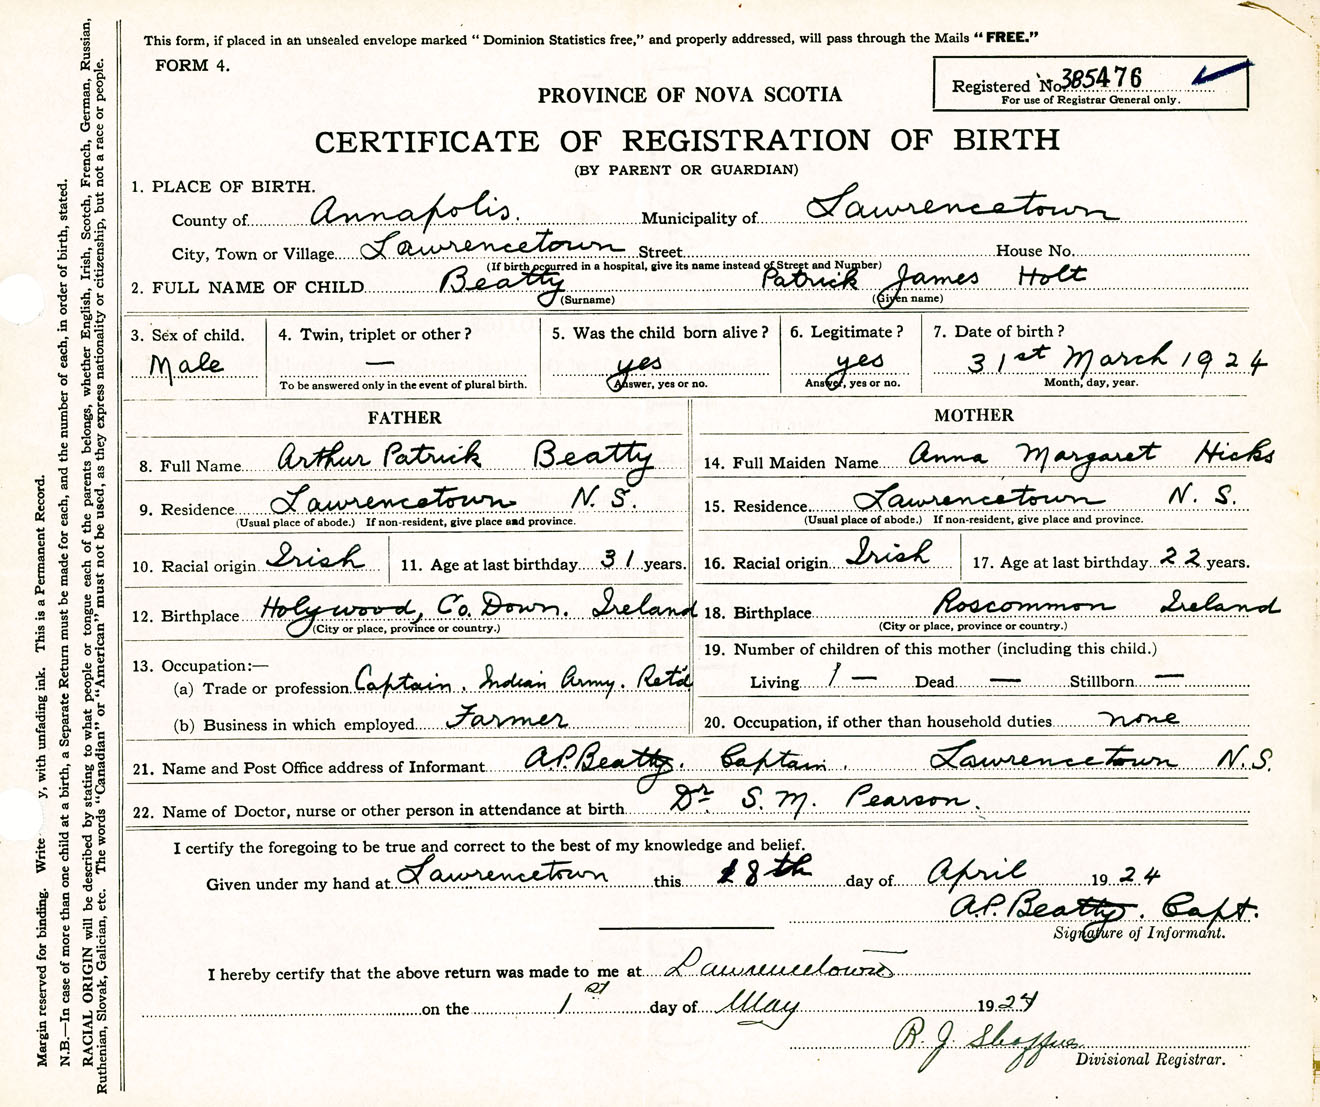 This form, if placed in an unsealed envelope marked "Dominion Statistics free," and properly addressed, will pass through the Mails "FREE."
FORM 4.
Registered No. 385476
For use of Registrar General only.
PROVINCE OF NOVA SCOTIA
CERTIFICATE OF REGISTRATION OF BIRTH
(BY PARENT OR GUARDIAN)
1. PLACE OF BIRTH.
County of Annapolis. Municipality of Lawrencetown
City, Town or Village Lawrencetown Street House No.
(If birth occurred in a hospital, give its name instead of Street and Number)
2. FULL NAME OF CHILD Beatty Patrick James Holt
(Surname) (Given name)
3. Sex of child. 4. Twin, triplet or other? 5. Was the child born alive? 6. Legitimate? 7. Date of birth?
Male — yes yes 31st March 1924
To be answered only in the event of plural birth. Answer, yes or no. Answer, yes or no. Month, day, year.
FATHER MOTHER
8. Full Name Arthur Patrick Beatty 14. Full Maiden Name Anna Margaret Hicks
9. Residence Lawrencetown N.S. 15. Residence Lawrencetown N.S.
(Usual place of abode.) If non-resident, give place and province. (Usual place of abode.) If non-resident, give place and province.
10. Racial origin Irish 11. Age at last birthday 31 years. 16. Racial origin Irish 17. Age at last birthday 22 years.
12. Birthplace Holywood, Co. Down. Ireland 18. Birthplace Roscommon Ireland
(City or place, province or country.) (City or place, province or country.)
13. Occupation:— 19. Number of children of this mother (including this child.)
(a) Trade or profession Captain. Indian Army. Ret'd Living 1 — Dead — Stillborn —
(b) Business in which employed Farmer 20. Occupation, if other than household duties none
21. Name and Post Office address of Informant A.P. Beatty. Captain. Lawrencetown N.S.
22. Name of Doctor, nurse or other person in attendance at birth Dr S. M. Pearson.
I certify the foregoing to be true and correct to the best of my knowledge and belief.
Given under my hand at Lawrencetown this 18th day of April 1924
A.P. Beatty. Capt.
Signature of Informant.
I hereby certify that the above return was made to me at Lawrencetown
on the 1st day of May 1924
R. J. Shaffner
Divisional Registrar.
Margin reserved for binding. Write y, with unfading ink. This is a Permanent Record.
N.B.—In case of more than one child at a birth, a Separate Return must be made for each, and the number of each, in order of birth, stated.
RACIAL ORIGIN will be described by stating to what people or tongue each of the parents belongs, whether English, Irish, Scotch, French, German, Russian,
Ruthenian, Slovak, Galician, etc. The words "Canadian" or "American" must not be used, as they express nationality or citizenship, but not a race or people.